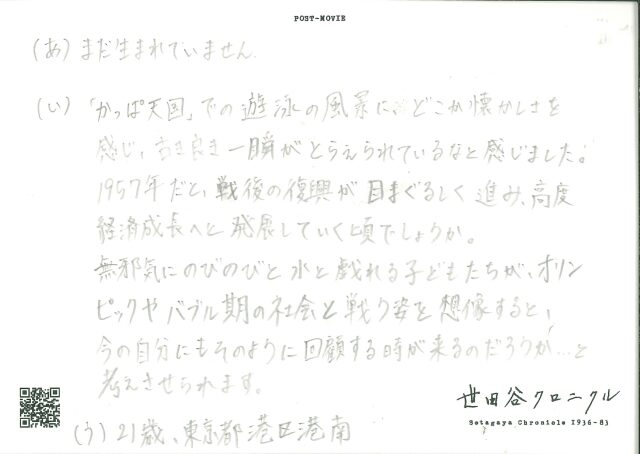 POST-MOVIE
(あ) まだ生まれていません。
(い) 「かっぱ天国」での遊泳の風景に、どこか懐かしさを
感じ、古き良き一瞬がとらえられているなと感じました。
1957年だと、戦後の復興が目まぐるしく進み、高度
経済成長へと発展していく頃でしょうか。
無邪気にのびのびと水と戯れる子どもたちが、オリン
ピックやバブル期の社会と戦う姿を想像すると、
今の自分にもそのように回顧する時が来るのだろうか…と
考えさせられます。
(う) 21歳、東京都港区港南
世田谷クロニクル
Setagaya Chronicle 1936-83